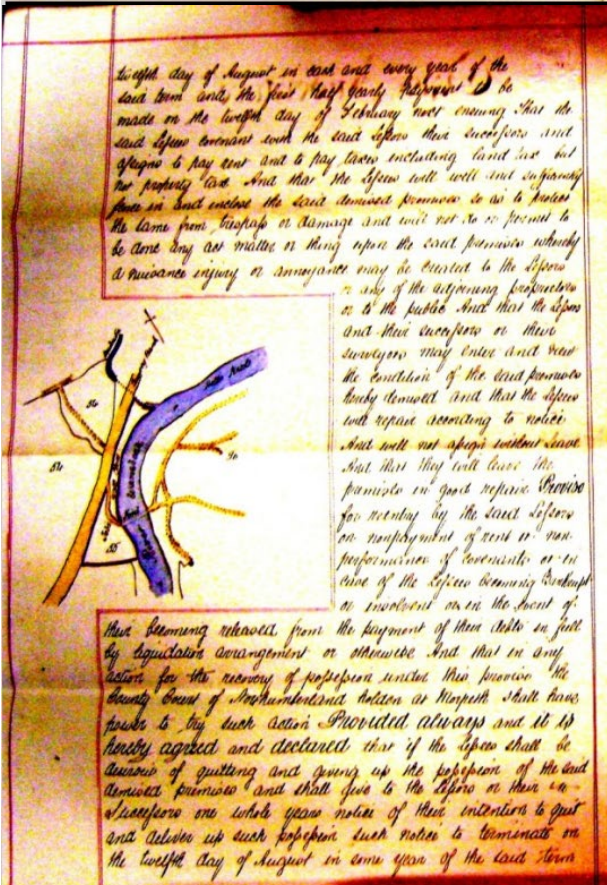 twelfth day of August in each and every year of the
said term and the first half yearly payment to be
made on the twelfth day of February next ensuing That the
said Lessees covenant with the said Lessors their successors and
assigns to pay rent and to pay taxes including land tax but
not property tax And that the Lessees will well and sufficiently
fence in and inclose the said demised premises so as to protect
the same from trespass or damage and will not do or permit to
be done any act matter or thing upon the said premises whereby
a nuisance injury or annoyance may be created to the Lessors
or any of the adjoining proprietors
or to the public And that the Lessors
and their successors or their
surveyors may enter and view
the condition of the said premises
hereby demised and that the Lessees
will repair according to notice
And will not assign without leave
And that they will leave the
premises in good repair Proviso
for reentry by the said Lessors
on nonpayment of rent or non-
performance of covenants or in
case of the Lessees becoming Bankrupt
or insolvent or in the event of
their becoming released from the payment of their debts in full
by liquidation arrangement or otherwise And that in any
action for the recovery of possession under this proviso the
County Court of Northumberland holden at Morpeth shall have
power to try such action Provided always and it is
hereby agreed and declared that if the Lessees shall be
desirous of quitting and giving up the possession of the said
demised premises and shall give to the Lessors or their
Successors one whole years notice of their intention to quit
and deliver up such possession such notice to terminate on
the twelfth day of August in some year of the said term
River